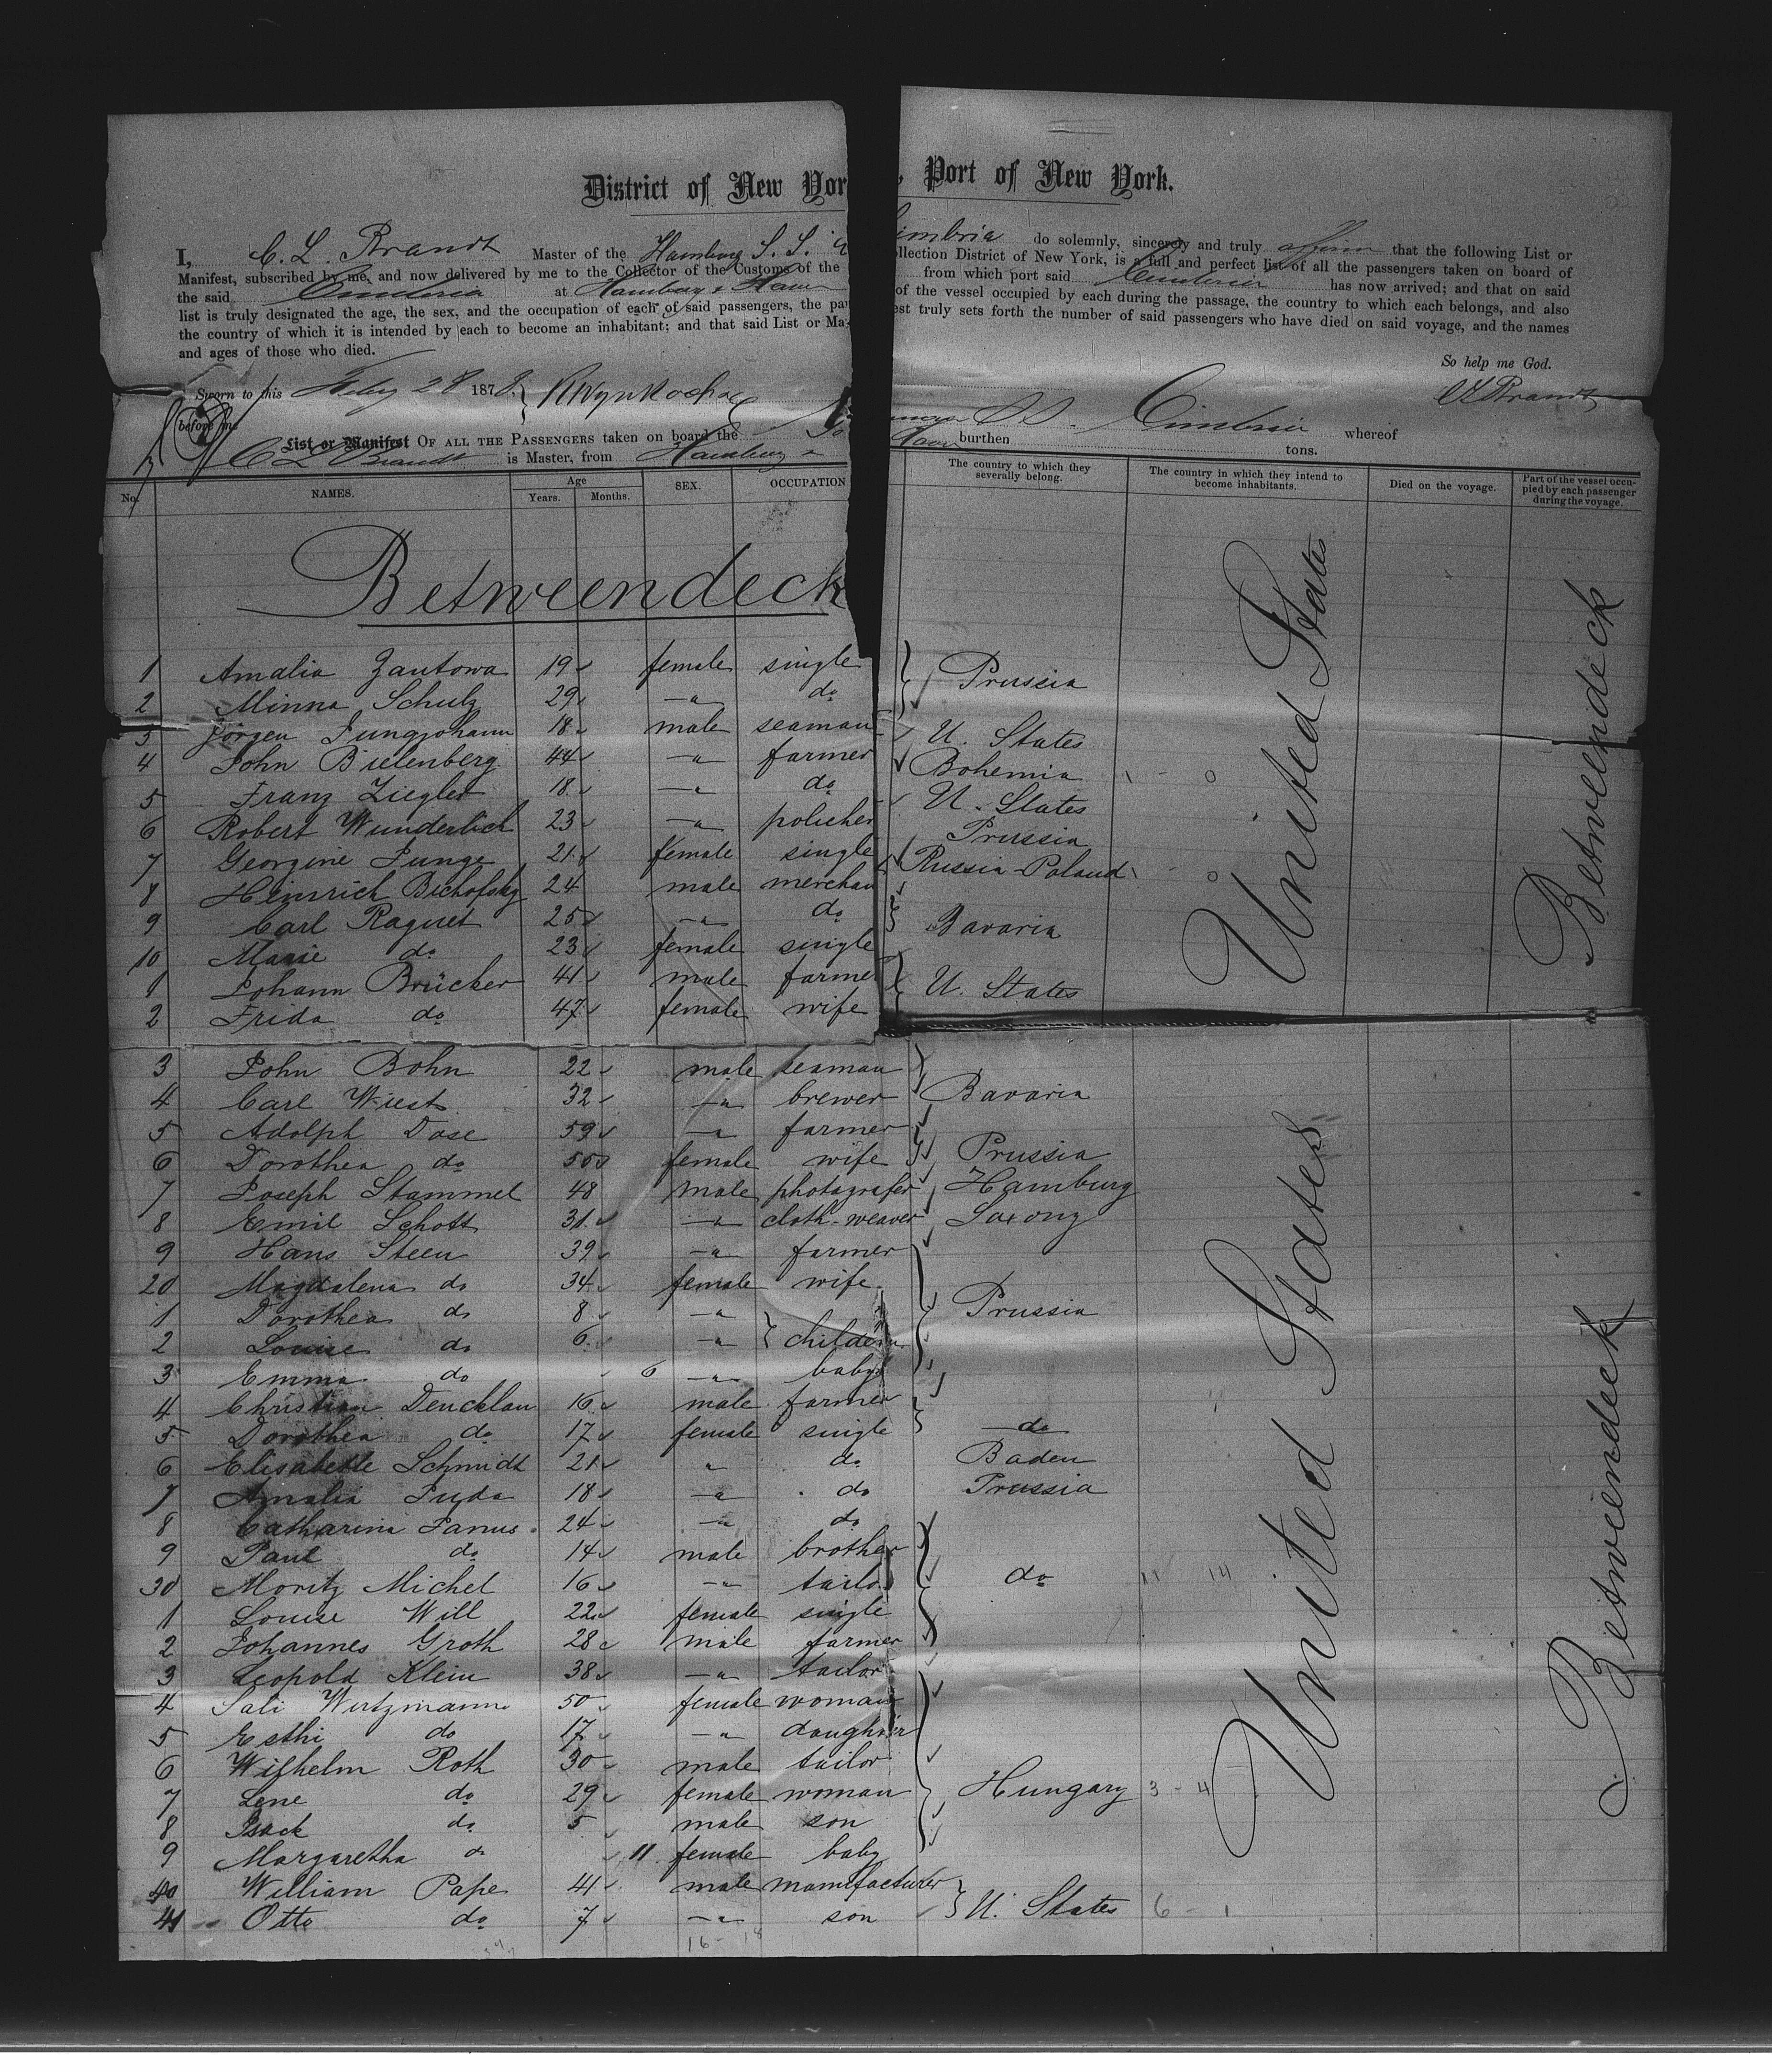 District of New Yor , Port of New York.
I, C. L. Brandt Master of the Hamburg S. S. Cimbria do solemnly, sincerely and truly affirm that the following List or
Manifest, subscribed by me, and now delivered by me to the Collector of the Customs of the ollection District of New York, is a full and perfect list of all the passengers taken on board of
the said Cimbria at Hamburg & Havre from which port said Cimbria has now arrived; and that on said
list is truly designated the age, the sex, and the occupation of each of said passengers, the pa of the vessel occupied by each during the passage, the country to which each belongs, and also
the country of which it is intended by each to become an inhabitant; and that said List or Ma est truly sets forth the number of said passengers who have died on said voyage, and the names
and ages of those who died.
So help me God.
Sworn to this Feby 28 1878. C L Brandt
before me
List or Manifest OF ALL THE PASSENGERS taken on board the S. S. Cimbria whereof
C L Brandt is Master, from Hamburg & Havre burthen tons.
No. NAMES. Age Years. Months. SEX. OCCUPATION The country to which they severally belong. The country in which they intend to become inhabitants. Died on the voyage. Part of the vessel occupied by each passenger during the voyage.
Betweendeck
1 Amalia Zautowa 19 female single
Prussia
2 Minna Schulz 29 —"— do
3 Jörgen Jungjohann 18 male seaman U. States
4 John Bielenberg 44 —"— farmer Bohemia
5 Franz Ziegler 18 —"— do U. States
6 Robert Wunderlich 23 —"— policher Prussia
7 Georgine Junge 21 female single Russia-Poland
8 Heinrich Bichofsky 24 male merchan
9 Carl Raquet 25 —"— do Bavaria
10 Marie do 23 female single
1 Johann Brücker 41 male farmer U. States
2 Frida do 47 female wife
United States
Betweendeck
3 John Bohn 22 male seaman
4 Carl Wiest 32 —"— brewer Bavaria
5 Adolph Dose 59 —"— farmer
6 Dorothea do 50 female wife Prussia
7 Joseph Stammel 48 male photografer Hamburg
8 Emil Schott 31 —"— cloth-weaver Saxony
9 Hans Steen 39 —"— farmer
20 Magdalena do 34 female wife
1 Dorothea do 8 —"— Prussia
2 Louise do 6 —"— childern
3 Emma do 6 —"— baby
4 Christian Deucklau 16 male farmer
5 Dorothea do 17 female single —do—
6 Elisabethe Schmidt 21 " do Baden
7 Amalia Juda 18 —"— do Prussia
8 Catharina Janus 24 —"— do
9 Paul do 14 male brother
30 Moritz Michel 16 —"— tailor do 11 14
1 Louise Will 22 female single
2 Johannes Groth 28 male farmer
3 Leopold Klein 38 —"— tailor
4 Sali Wirtzmann 50 female woman
5 Esthi do 17 —"— daughter
6 Wilhelm Roth 30 male tailor
7 Lene do 29 female woman Hungary 3 - 4
8 Isack do 5 male son
9 Margaretha do 11 female baby
40 William Pape 41 male manufacturer
41 Otto do 7 —"— son U. States 6 - 1
United States
Betweendeck
16 - 18